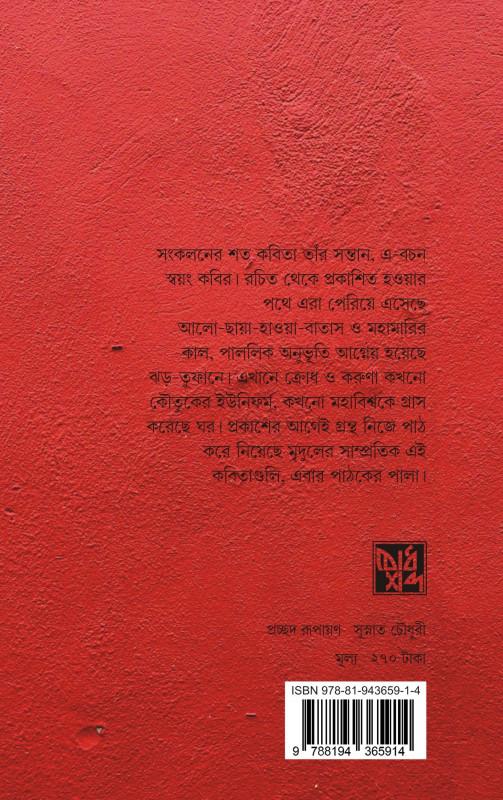 সংকলনের শত কবিতা তাঁর সন্তান, এ-বচন
স্বয়ং কবির। রচিত থেকে প্রকাশিত হওয়ার
পথে এরা পেরিয়ে এসেছে
আলো-ছায়া-হাওয়া-বাতাস ও মহামারির
কাল, পাললিক অনুভূতি আগ্নেয় হয়েছে
ঝড়-তুফানে। এখানে ক্রোধ ও করুণা কখনো
কৌতুকের ইউনিফর্ম, কখনো মহাবিশ্বকে গ্রাস
করেছে ঘর। প্রকাশের আগেই গ্রন্থ নিজে পাঠ
করে নিয়েছে মৃদুলের সাম্প্রতিক এই
কবিতাগুলি, এবার পাঠকের পালা।
বোধ
শব্দ
প্রচ্ছদ রূপায়ণ সুস্নাত চৌধুরী
মূল্য ২৭০ টাকা
ISBN 978-81-943659-1-4
9 788194 365914